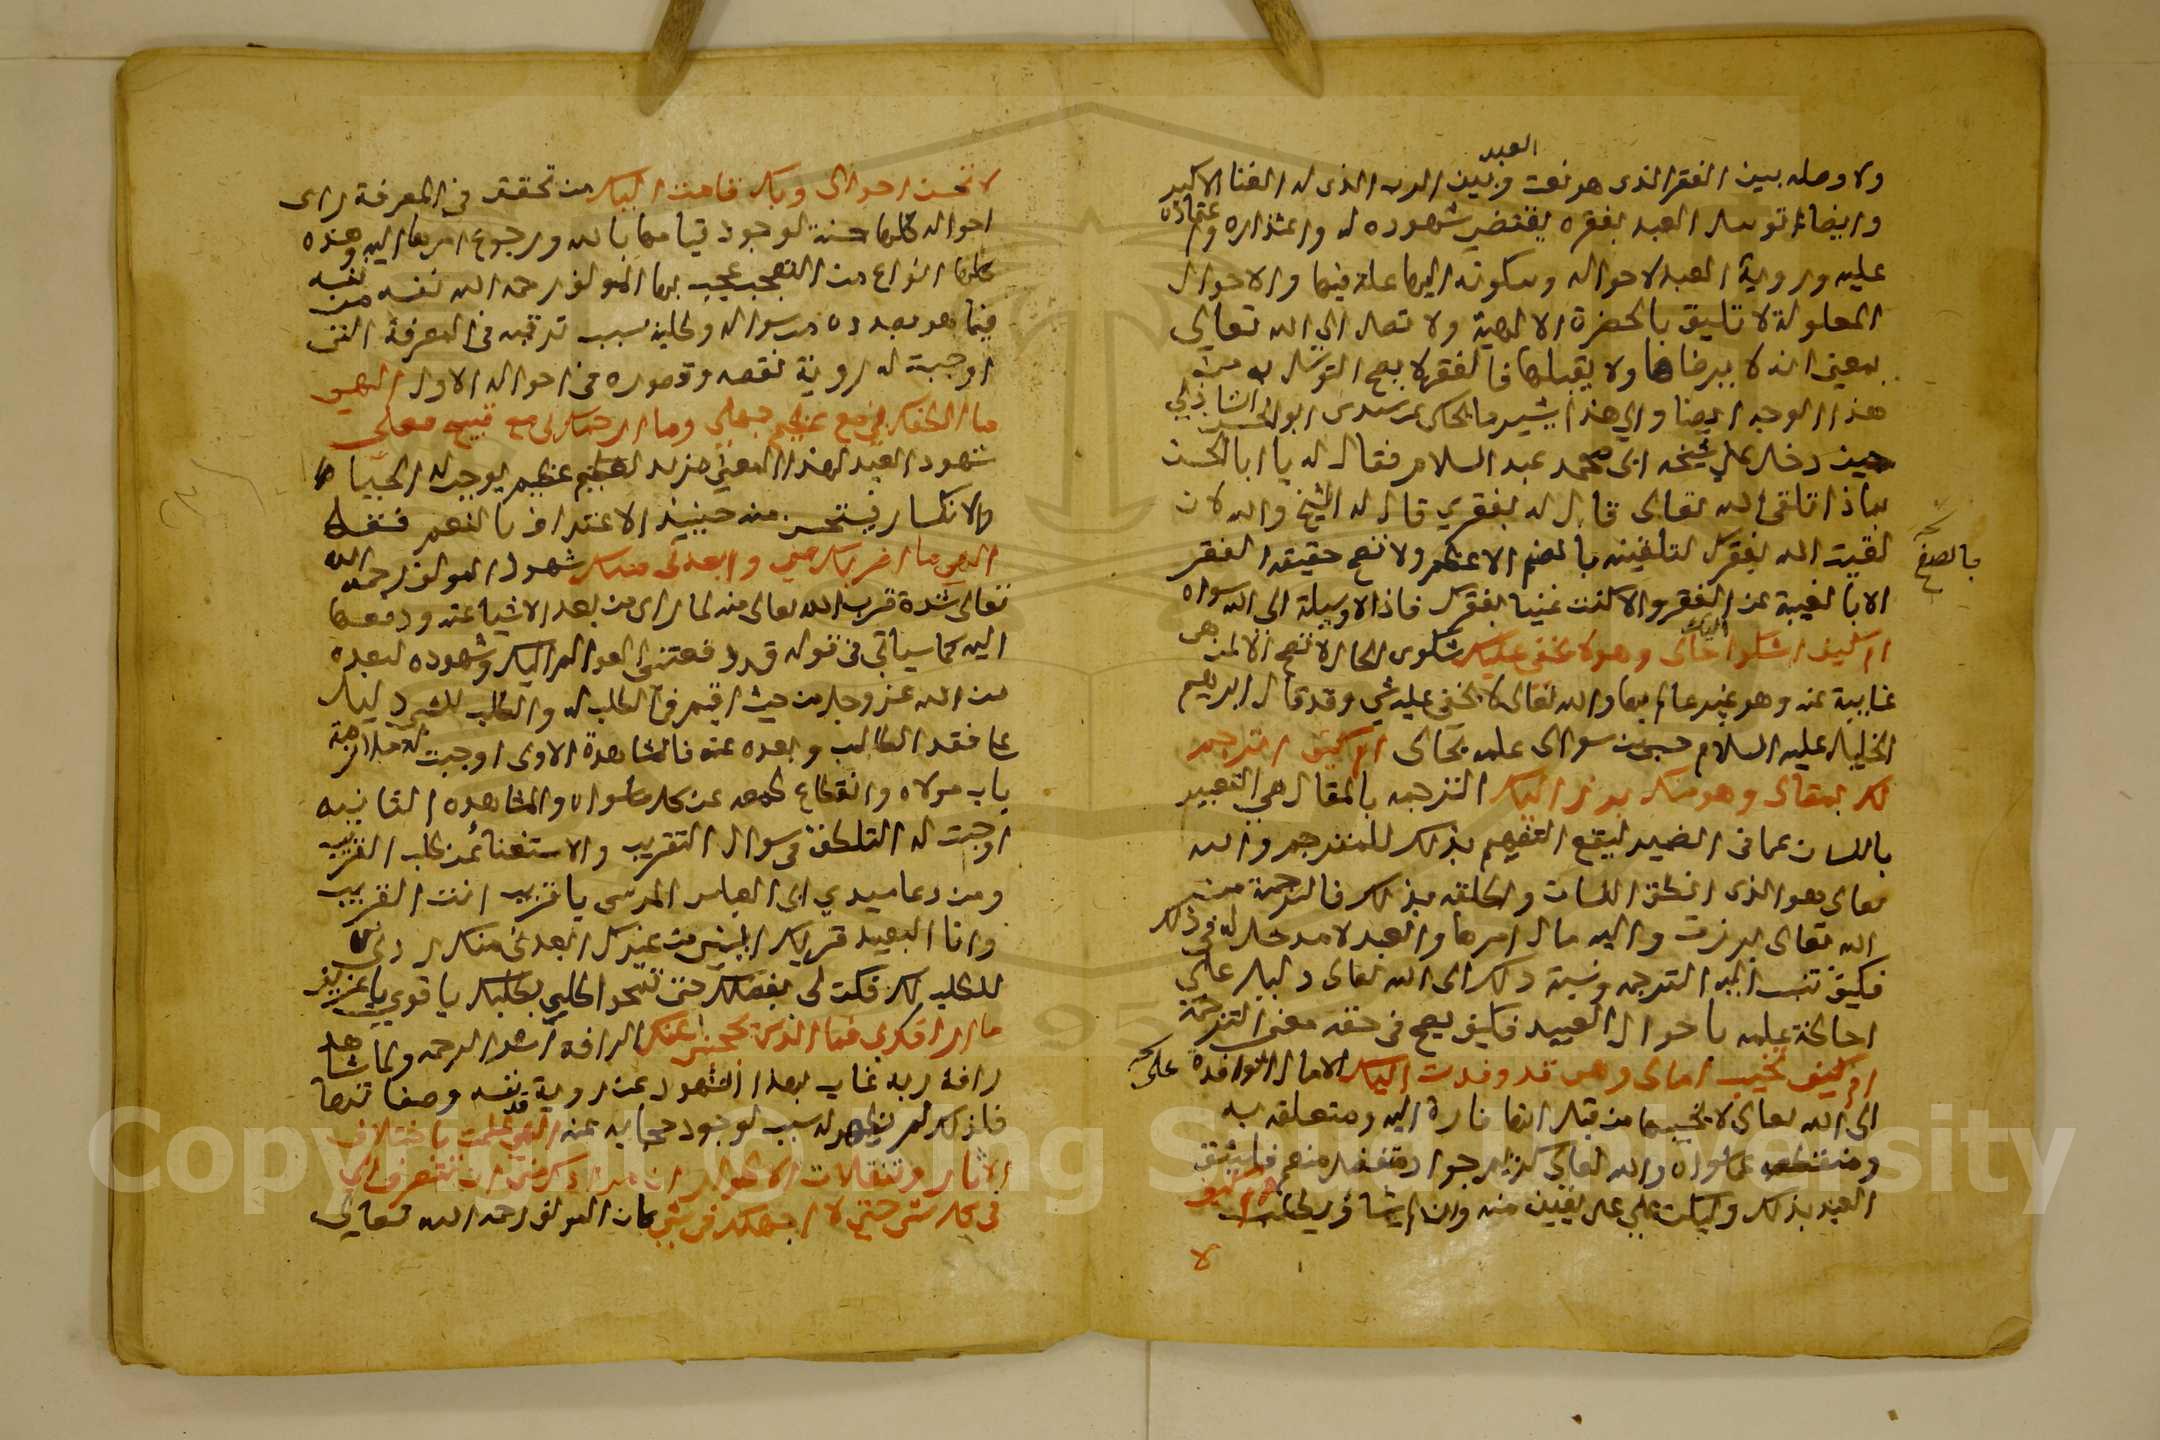 العبد
ولا وصله بين الفقر الذى هو نعت وبين الرب الذى له الغنا الاكبر
وايضا توسل العبد بفقره يقتضى شهوده له واعتماده
عليه وروية العبد لاحواله وسكونه اليها علة فيها والاحوال
المعلولة لا تليق بالحضرة الالهية ولا تصل الى الله تعالى
بمعنى انه لا يرضاها ولا يقبلها فالفقر لا يصح التوسل به من
هذا الوجه ايضا والى هذا يشير ما يحكى عن سيدى ابو الحسن الشاذلي
حين دخل على شيخه ابى محمد عبد السلام فقال له يا ابا الحسن
بماذا تلقى الله تعالى قال له بفقري قال له الشيخ والله لان
لقيت الله بفقرك لتلقينه بالصنم الاعظم ولا تصح حقيقة الفقر
بالصنم
الا بالغيبة عن الفقر والا كنت غنيا بفقرك فاذا لا وسيلة الى الله سواه
ام كيف اشكوا اليك حالى وهو لا يخفى عليك شكوى الحال لا تصح الا لمن هى
غايبة عنه وهو غير عالم بها والله تعالى لا يخفى عليه شي وقد قال ابرهيم
الخليل عليه السلام حسبى من سوالى علمه بحالى ام كيف اترجم
لك بمقالى وهو منك برز اليك الترجمه بالمقال هي التعبير
باللسان عما في الضمير ليقع التفهيم بذلك للمترجم والله
تعالى هو الذى انطق اللسان واطلقه بذلك فالترجمة من
الله تعالى برزت واليه مال امرها والعبد لا مدخل له في ذلك
فكيف تنسب اليه الترجمه ونسبة ذلك الى الله تعالى دليل على
احاطة علمه باحوال العبيد فكيف يصح في حقه معنى الترجمة
ام كيف تخيب امالى وهى قد وفدت اليك الامال الوافدة على
الى الله تعالى لا يخيبها من قبل انها فارة اليه ومتعلقة به
ومنقطعه عما سواه والله تعالى كريم جواد متفضل منعم فليثق
العبد بذلك وليكن على يقين منه وان لم يشا في يطلب ام كيف
لا
لا تحسن احوالى وبك قامت اليك من تحقق في المعرفة راى
احواله كلها حسنة لوجود قيامها بالله ورجوع امرها اليه وهذه
كلها انواع من التعجب عجب بها المولف رحمه الله نفسه من نفسه
فيما هو بصدده من سواله وطلبه بسبب ترقيه في المعرفة التى
اوجبت له روية نقصه وقصوره في احواله الاول الهى
ما الطفك بي مع عظيم جهلي وما ارحمك بى مع قبيح فعلى
شهود العبد لهذا المعنى من يد لعظيم عظيم يوجب له الحيا
والانكسار فيستحسن منه حينئذ الاعتراف بالنعم فقال
الهى ما اقربك منى وابعدنى منك شهود المولف رحمه الله
تعالى شدة قرب الله تعالى منه لما راى من بعد الاشيا عنه ودفعها
اليه كما سياتي في قوله قد دفعتنى العوالم اليك وشهوده لبعده
من الله عز وجل من حيث اقيم في الطلب له والطلب للشي دليل
على فقد الطالب وبعده عنه فالمشاهدة الاولى اوجبت له ملازمة
باب مولاه وانقطاع طمعه عن كل ما سواه والمشاهدة الثانيه
اوجبت له التلطف في سوال التقريب والاستغنا عن طلب القريب
ومن دعا سيدي ابى العباس المرسى يا قريب انت القريب
وانا البعيد قربك ايسنى من غيرك وبعدى منك ردنى
للطلب لك فكن لى بفضلك حتى تمحو طلبي بطلبك يا قوي يا عزيز
ما ارافك بى فما الذى يحجبنى عنك الرافة اشد الرحمه ولما شاهد
رافة ربه غاب بهذا الشهود عن روية نفسه وصفاتها
فلذلك لم يظهر له سبب لوجود حجابه عنه الهى قد علمت باختلاف
الاثار وتنقلات الاطوار ان مرادك منى ان تتعرف الى
في كل شي حتى لا اجهلك في شي كان المولف رحمه الله تعالى